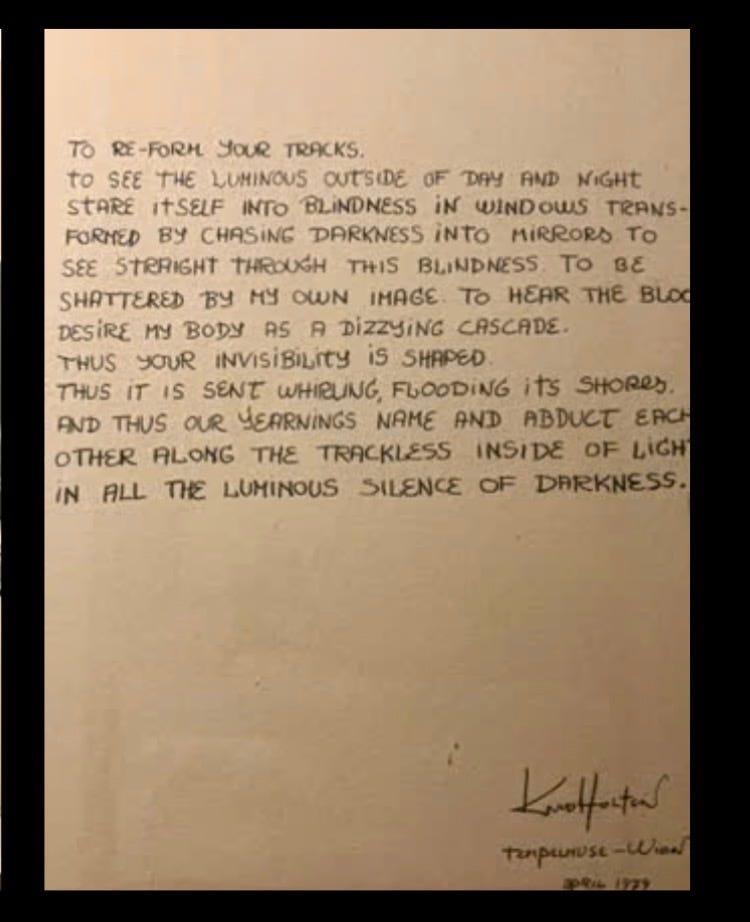 TO RE-FORM YOUR TRACKS.
TO SEE THE LUMINOUS OUTSIDE OF DAY AND NIGHT
STARE ITSELF INTO BLINDNESS IN WINDOWS TRANS-
FORMED BY CHASING DARKNESS INTO MIRRORS. TO
SEE STRAIGHT THROUGH THIS BLINDNESS. TO BE
SHATTERED BY MY OWN IMAGE. TO HEAR THE BLOO
DESIRE MY BODY AS A DIZZYING CASCADE.
THUS YOUR INVISIBILITY IS SHAPED.
THUS IT IS SENT WHIRLING, FLOODING ITS SHORES.
AND THUS OUR YEARNINGS NAME AND ABDUCT EACH
OTHER ALONG THE TRACKLESS INSIDE OF LIGH
IN ALL THE LUMINOUS SILENCE OF DARKNESS.
APRIL 1979